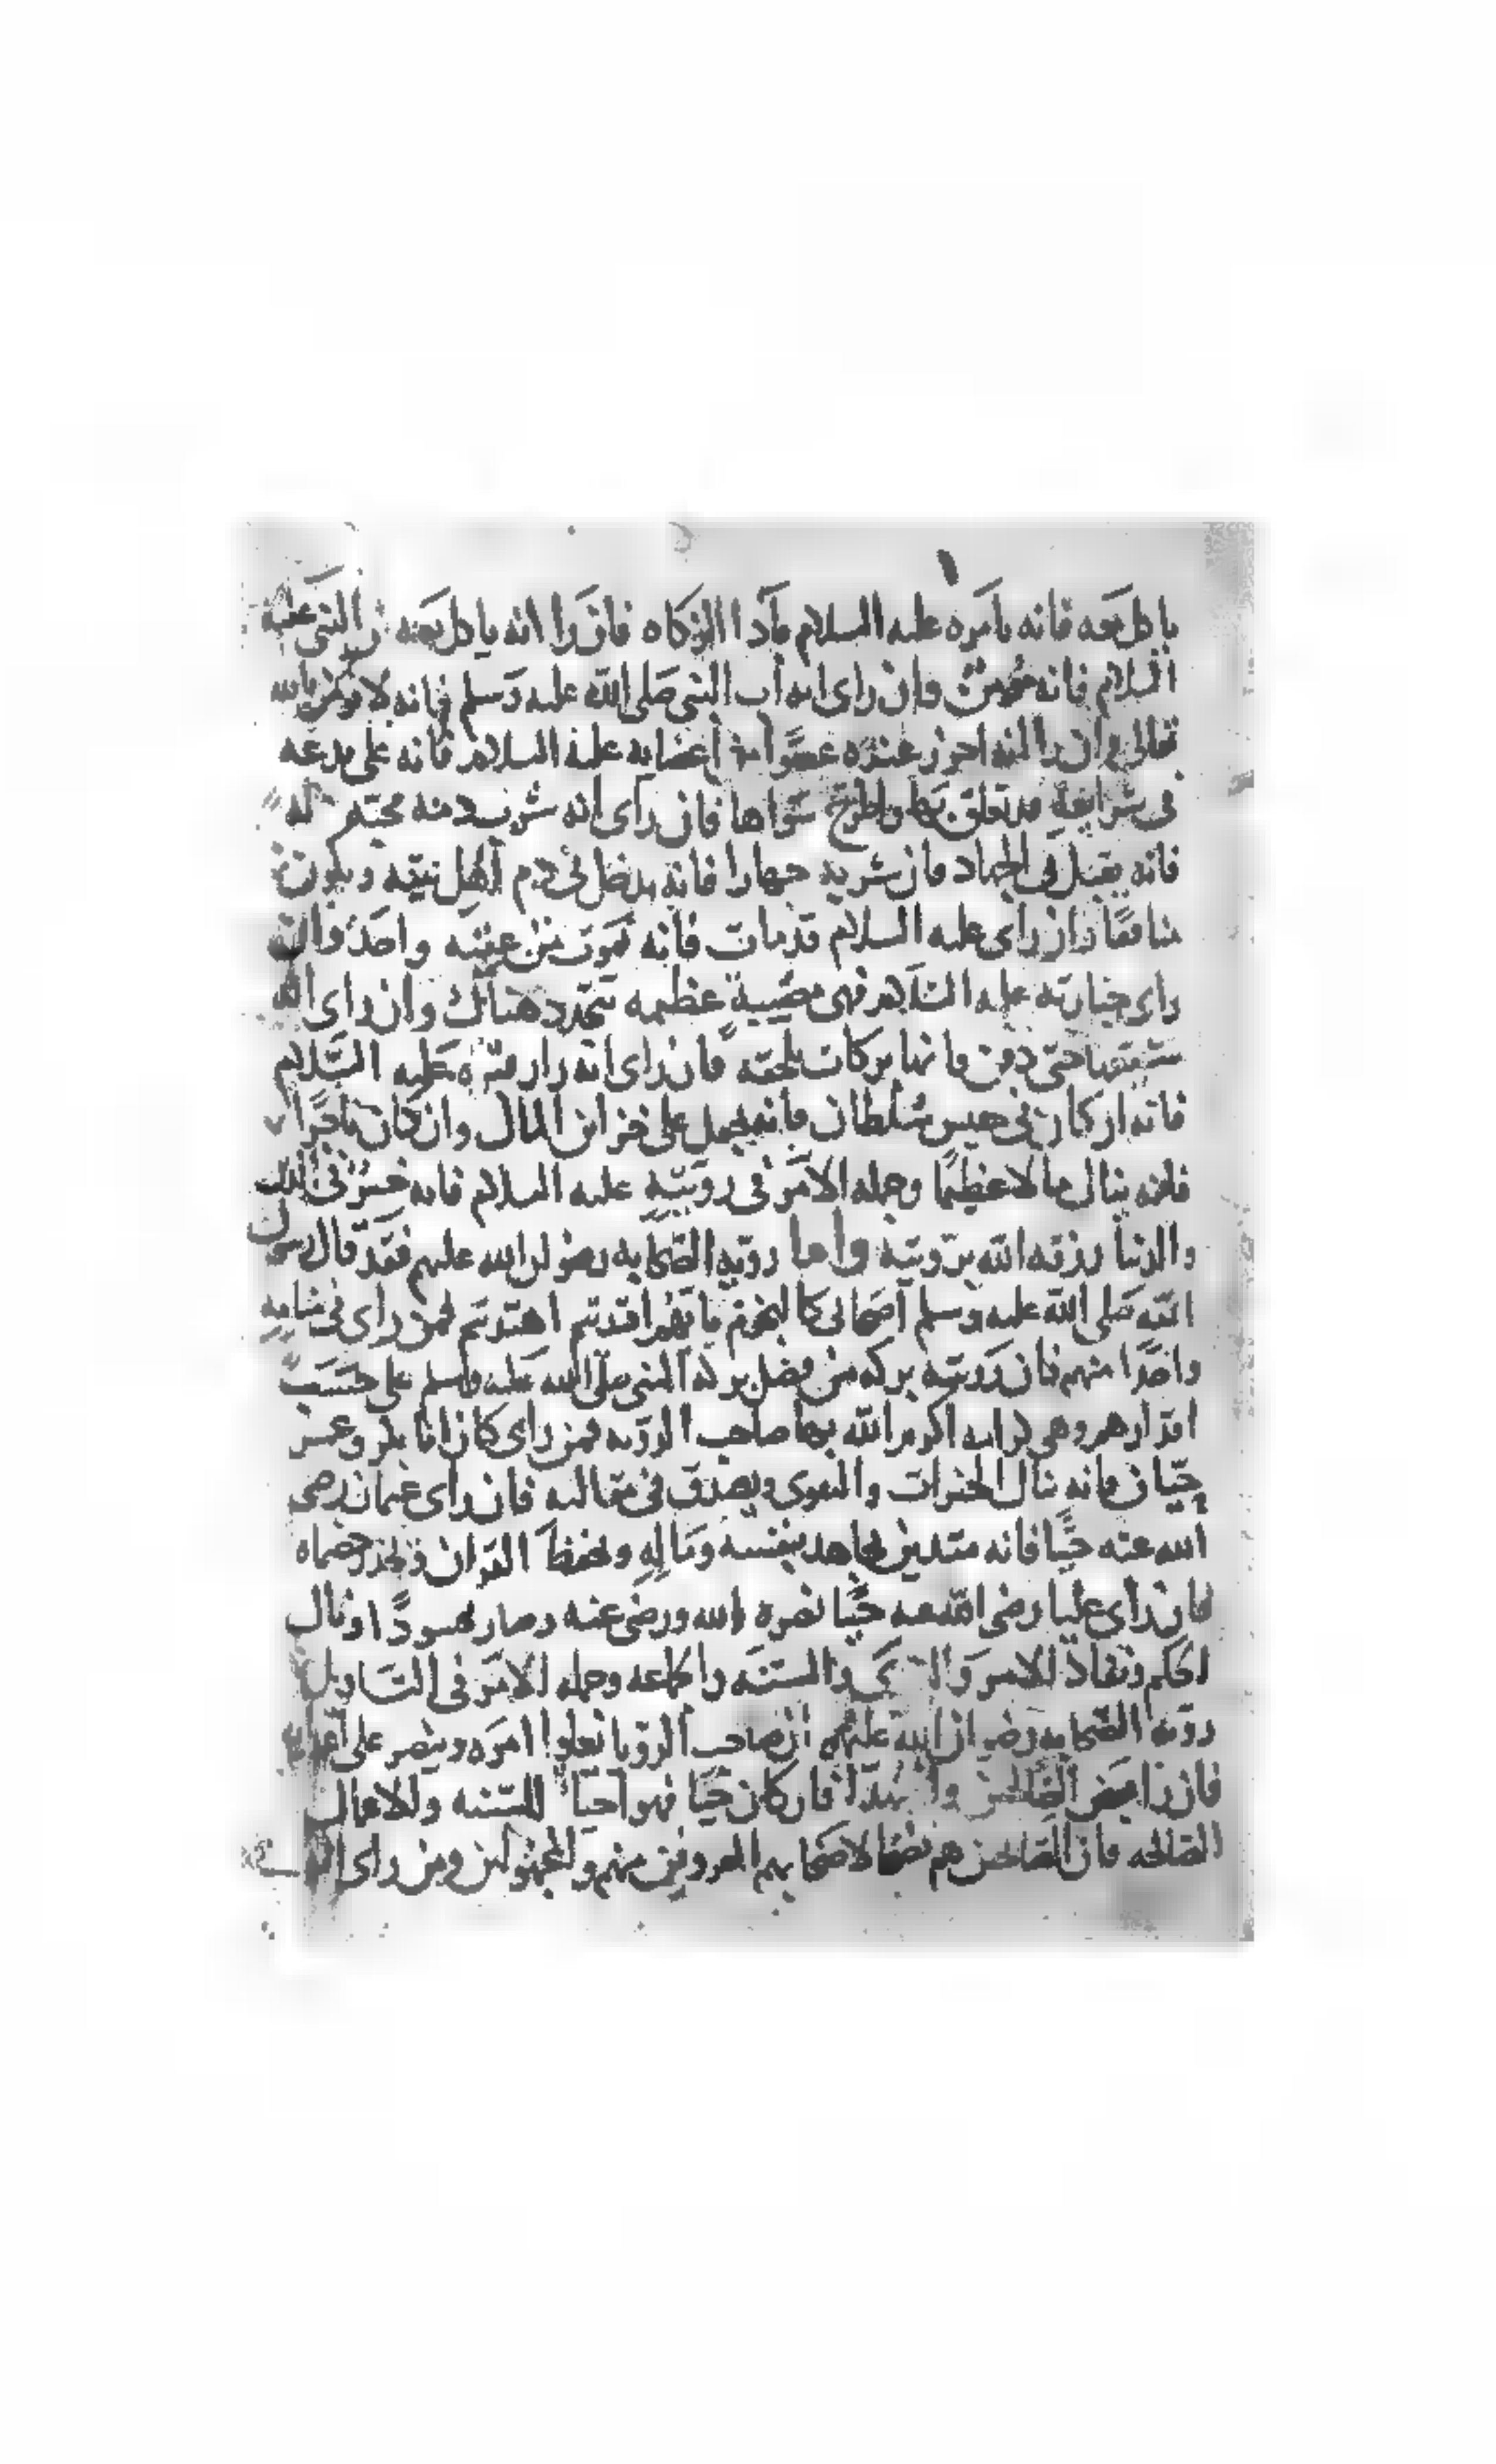 ياكل معه فانه يامره عليه السلام بآدا الزكاه فان را انه ياكل معه النبي عليه
السلام فانه مومن وان راى انه اب النبي صلى الله عليه وسلم فانه لا يومن بالله
تعالى وان را انه احرز عنده عضوًا من اعضايه عليه السلام فانه على بدعه
في شرايعه قد تعلق بها واطرح سواها فان راى انه شرب دمه محبته له
فانه يقتل في الجهاد فان شربه جهارا فانه يدخل في دم اهل بيته ويكون
منافقا وان راى عليه السلام قد مات فانه يموت من واحد وان
راى جنازته عليه السلام فهي مصيبة عظيمه تتجدد هناك وان راى انه
حتى دفن فانها بركات تلحقه فان راى انه زار قبره عليه السلام
فانه ان كان في حبس سلطان فانه يجعل على خزاين المال وان كان تاجرًا
فانه ينال مالا عظيمًا وجمله الامر في رويته عليه السلام فانه في
والدنيا رزقه الله برويته واما رويه الصحابه رضوان الله عليهم فقد قال رسول
الله صلى الله عليه وسلم اصحابي كالنجوم بايهم اقتديتم اهتديتم فمن راى في منامه
واحدًا منهم فان رويته بركه من فضل بركه النبي صلى الله عليه وسلم على حسب
اقدارهم وهي كرامه اكرم الله بها صاحب الرويه فمن راى كان ابا بكر وعمر
حيّان فانه ينال الخيرات والتقوى ويصدق في مقالته فان راى عثمان رضي
الله عنه حيًّا فانه متدين يجاهد بنفسه وماله ويحفظ القران
فان راى عليا رضي الله عنه حيًّا نصره الله ورضي عنه وصار محسودًا ونال
الحكم ونفاذ الامر والسنه والجماعه وجمله الامر في التاويل
رويه الصحابه رضوان الله عليهم ان صاحب الرويا يعلوا امره وينصر على اعدايه
فان را بعض الصالحين فان كان حيًا فهو احيا للسنه وللاعمال
الصالحه فان الصالحين هم لاصحابهم المعروفين منهم والمجهولين ومن راى